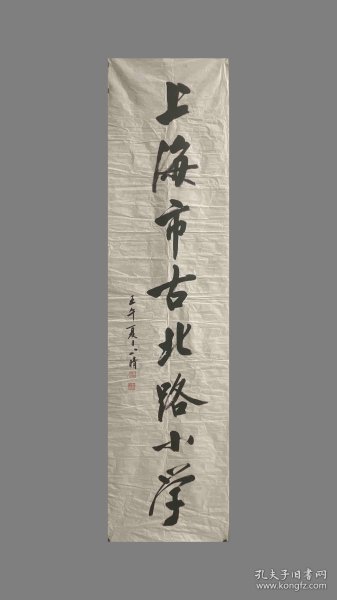 上海市古北路小学
壬午夏
孔夫子旧书网
www.kongfz.com